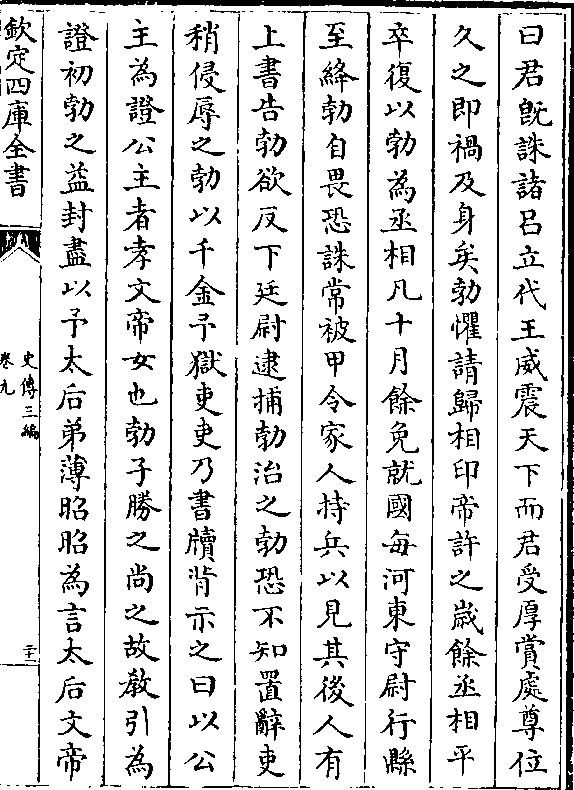 曰君旣誅諸呂立代王威震天下而君受厚賞處尊位
久之即禍及身矣勃懼請歸相印帝許之歲餘丞相平
卒復以勃為丞相凡十月餘免就國每河東守尉行縣
至絳勃自畏恐誅常被甲令家人持兵以見其後人有
上書告勃欲反下廷尉逮捕勃治之勃恐不知置辭吏
稍侵辱之勃以千金予獄吏吏乃書牘背示之曰以公
主為證公主者孝文帝女也勃子勝之尚之故教引為
證初勃之益封盡以予太后弟薄昭昭為言太后文帝
欽定四庫全書
史傳三編
卷九
二十二